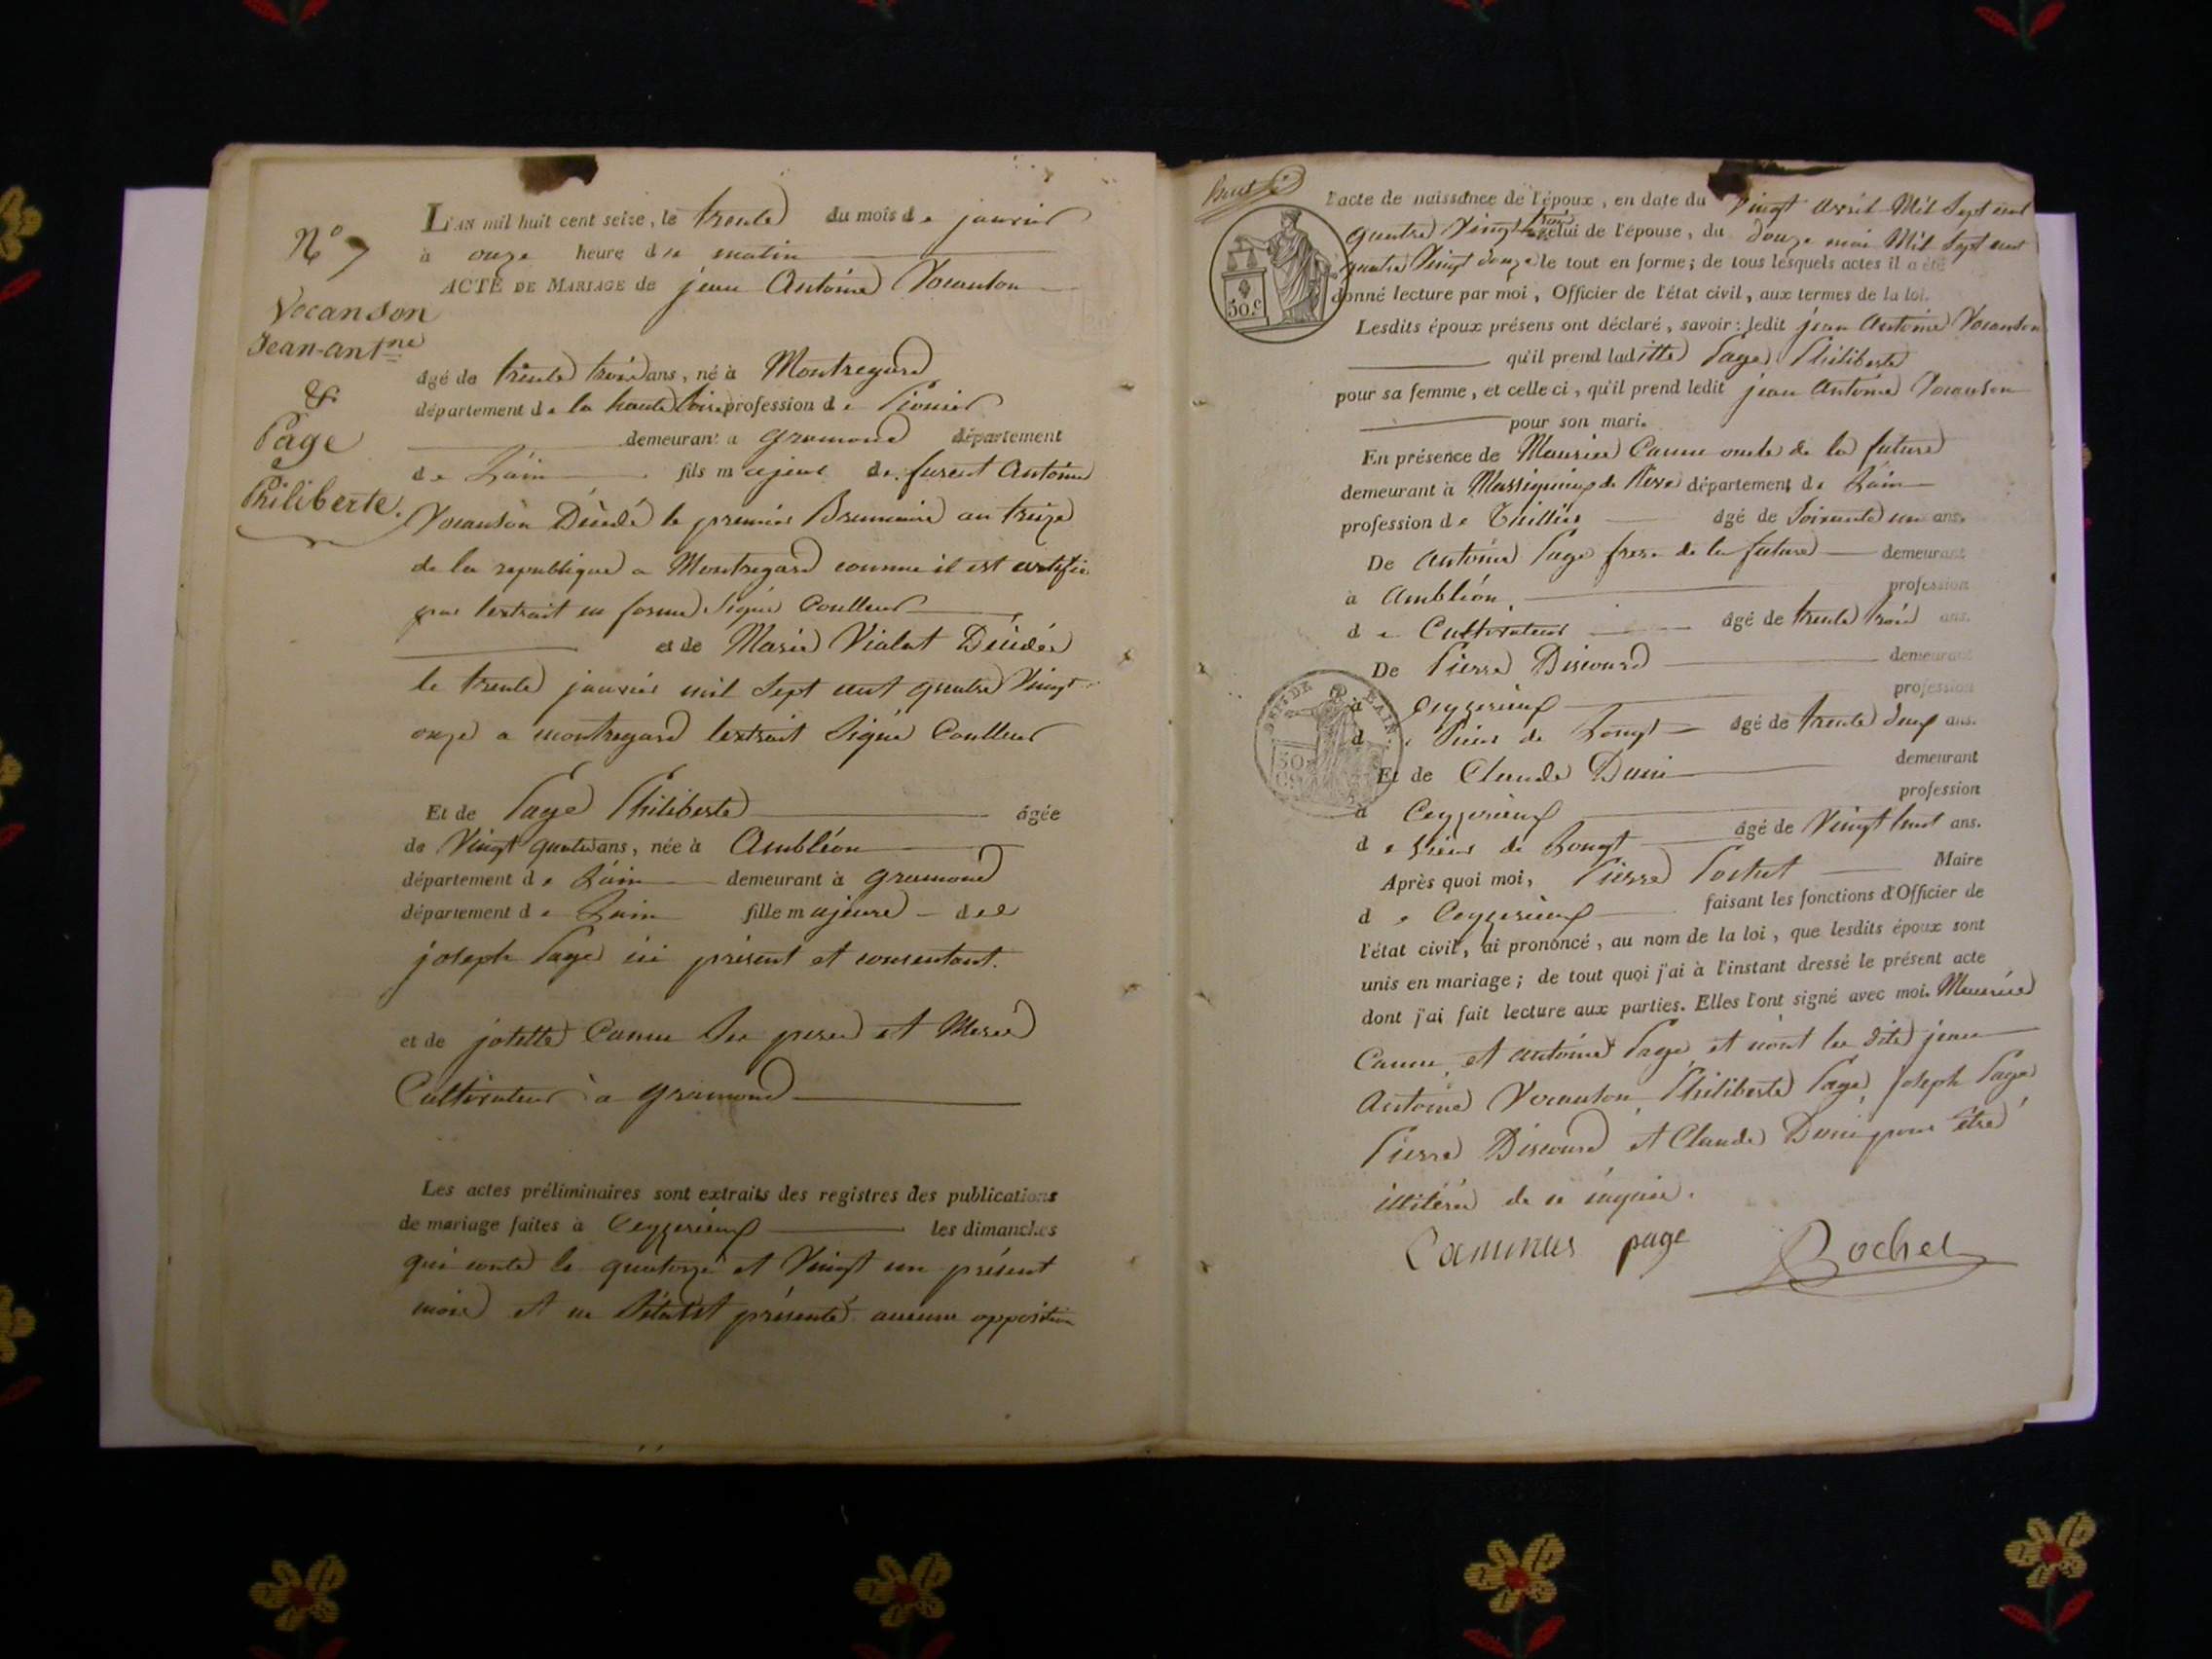 N° 7
Vocanson
Jean-antne
&
Page
Philiberte.
L'AN mil huit cent seize, le trente du mois de janvier
à onze heure du matin
ACTE DE MARIAGE de jean Antoine Vocanson
âgé de trente trois ans, né à Montregard
département de la haute loire profession de
demeurant a gramond département
de Lain fils majeur de furent Antoine
Vocanson Décédé le premier Brumaire an treize
de la republique a Montregard comme il est certifié
par lextrait en forme Signé Coulleur
et de Marie Vialat Décédée
le trente janvier mil Sept cent quatre Vingt
onze a montregard lextrait Signé Coulleur
Et de Page Philiberte âgée
de Vingt quatre ans, née à Ambléon
département de Lain demeurant à gramond
département de Lain fille majeure de
joseph Page ici présent et consentant.
et de josette Camu Ses pere et Mere
Cultivateur à gramond
Les actes préliminaires sont extraits des registres des publications
de mariage faites à Ceyzerieux les dimanches
qui conte le quatorze et Vingt un présent
mois et ne Sétant présenté aucune opposition
l'acte de naissance de l'époux, en date du Vingt avril Mil Sept cent
quatre Vingt trois celui de l'épouse, du douze mai Mil Sept cent
quatre Vingt douze le tout en forme; de tous lesquels actes il a été
donné lecture par moi, Officier de l'état civil, aux termes de la loi.
50.c
Lesdits époux présens ont déclaré, savoir: ledit jean Antoine Vocanson
qu'il prend laditte Page Philiberte
pour sa femme, et celle ci, qu'il prend ledit jean Antoine Vocanson
pour son mari.
En présence de Maurice Camu oncle de la future
demeurant à Massignieux de Rive département de Lain
profession de Tuillier âgé de Soixante un ans.
De Antoine Page frere de la future demeurant
à Ambléon profession
de Cultivateur âgé de trente trois ans.
De Pierre Discourd demeurant
à Ceyzerieux profession
de Sieur de Longt âgé de trente deux ans.
DEPT DE L'AIN
50
Et de Claude Duni demeurant
à Ceyzerieux profession
de Sieur de Longt âgé de Vingt huit ans.
Après quoi moi, Pierre Maire
de Ceyzerieux faisant les fonctions d'Officier de
l'état civil, ai prononcé, au nom de la loi, que lesdits époux sont
unis en mariage; de tout quoi j'ai à l'instant dressé le présent acte
dont j'ai fait lecture aux parties. Elles l'ont signé avec moi. Maurice
Camu, et antoine Page et nont les dits jean
Antoine Vocanson, Philiberte Page, Joseph Page
Pierre Discourd et Claude Duni pour être
illitéré de ce enquis.
Caminus page Bochet